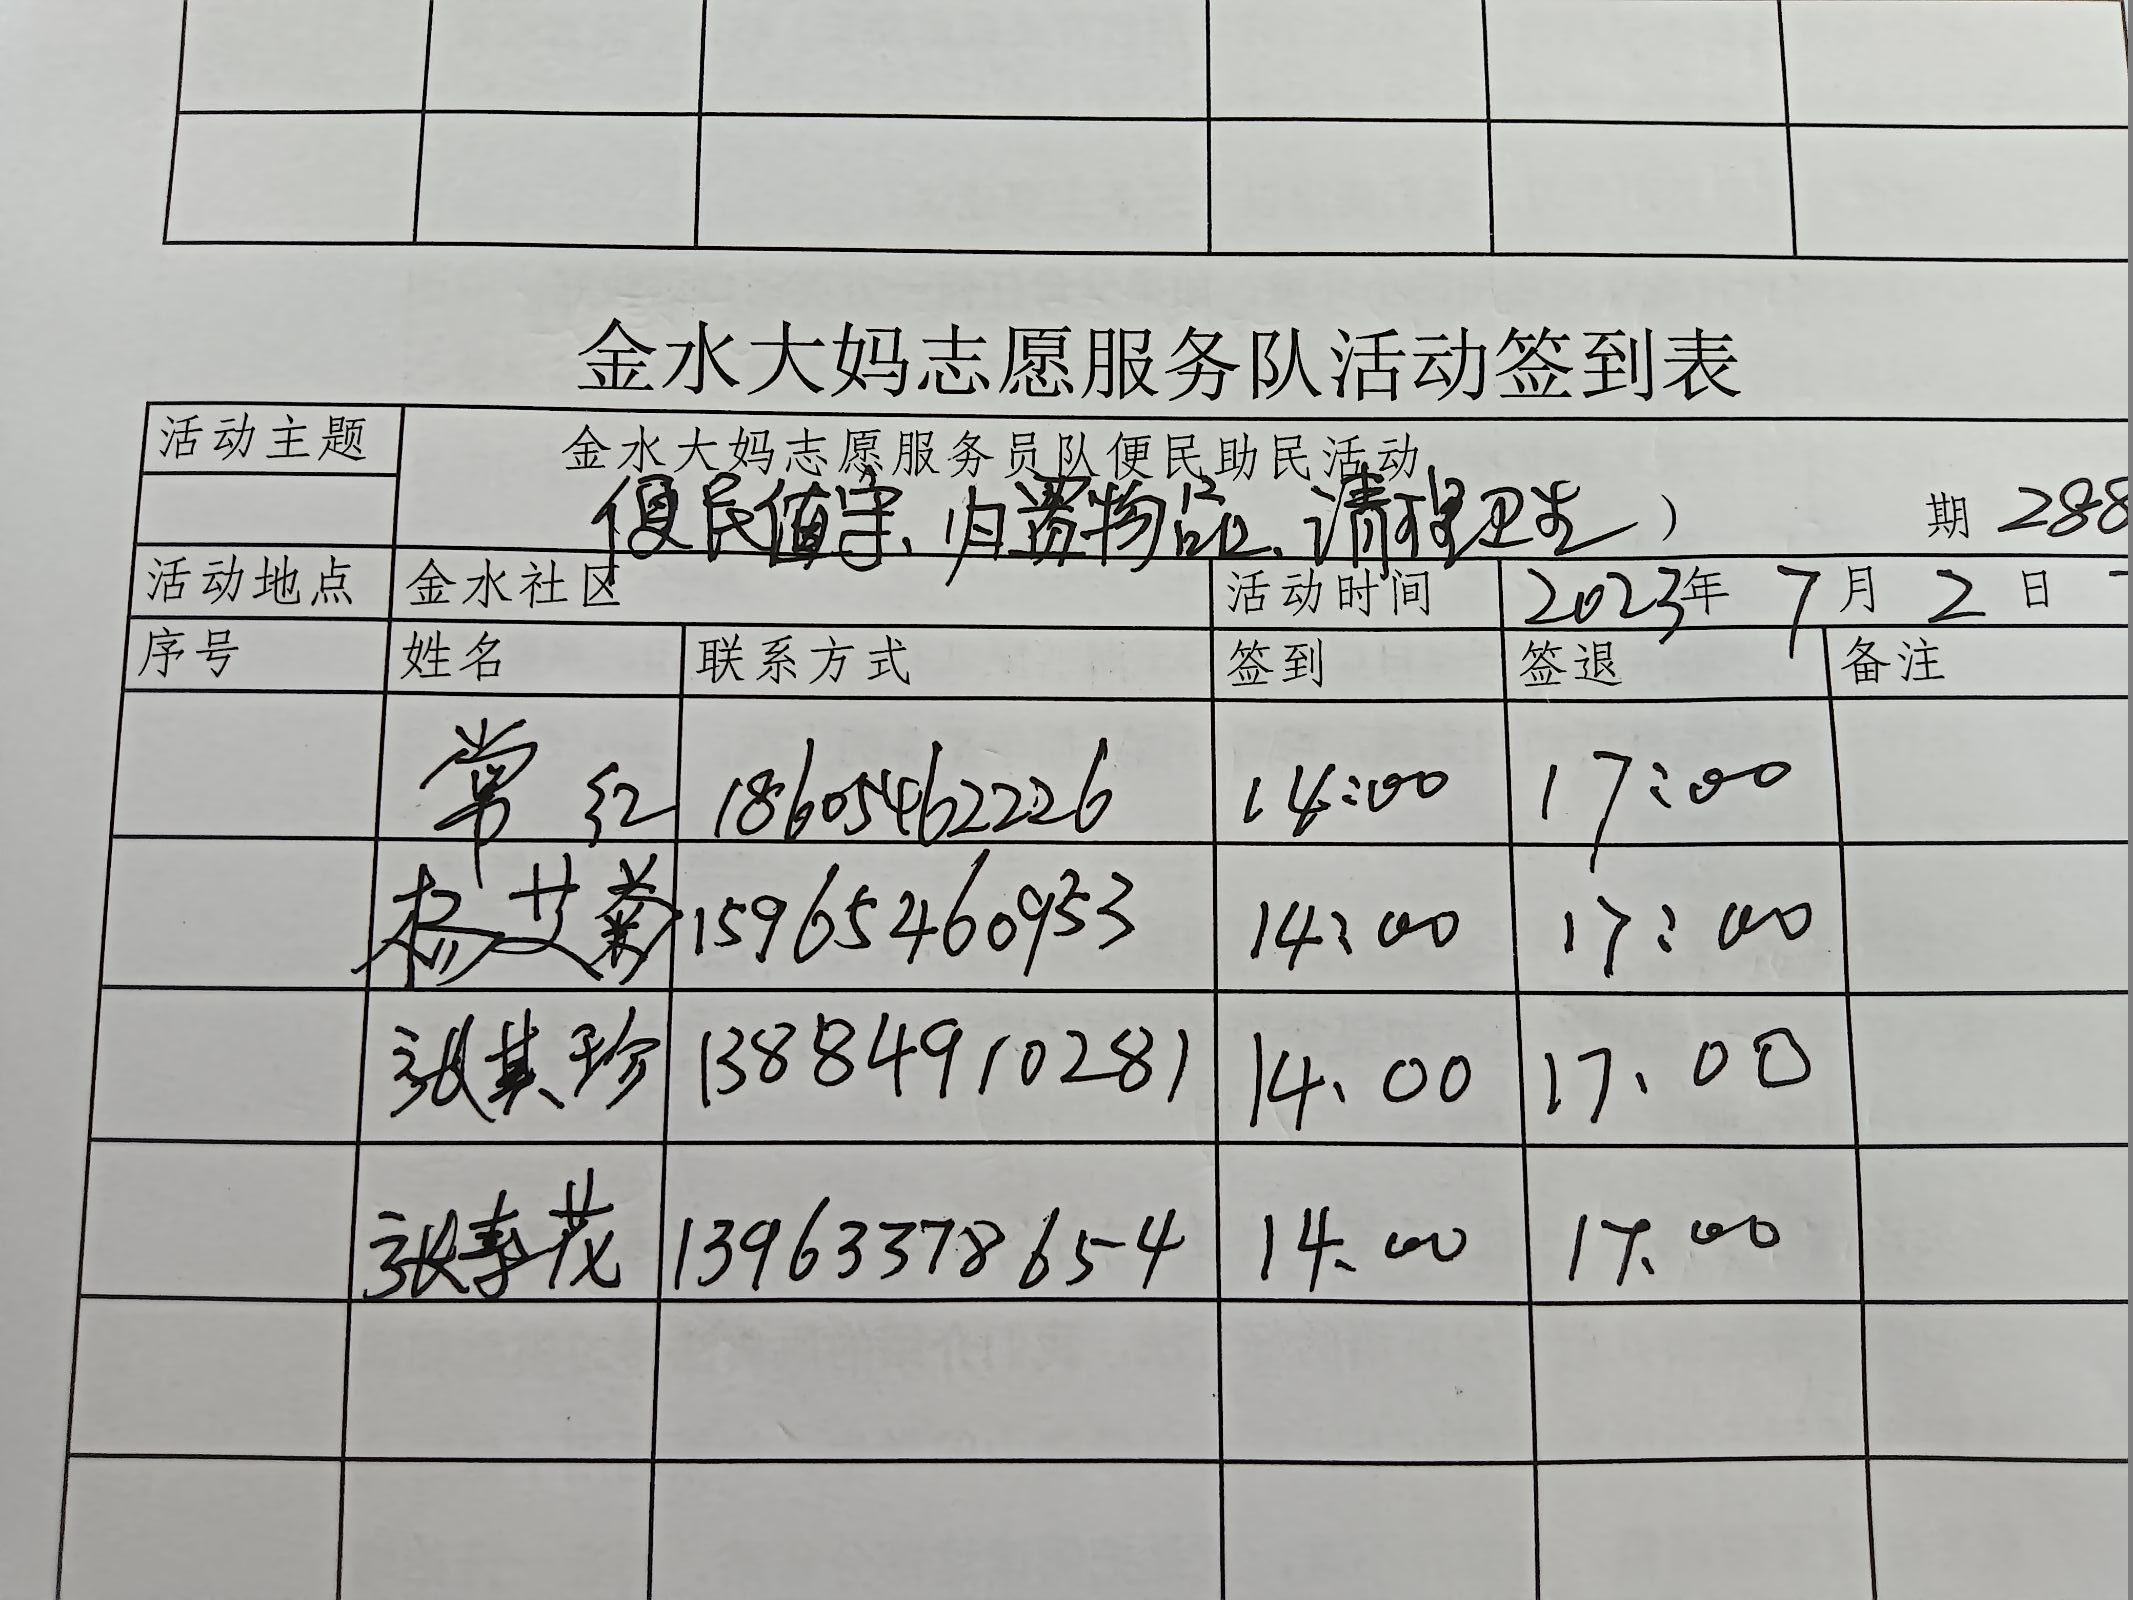 金水大妈志愿服务队活动签到表
活动主题 金水大妈志愿服务员队便民助民活动
便民值守、归置物品、清理卫生） 期 288
活动地点 金水社区 活动时间 2023年 7月 2日
序号 姓名 联系方式 签到 签退 备注
常红 18605462226 14:00 17:00
杨艾菊 15965460953 14:00 17:00
张其珍 13884910281 14、00 17、00
张春茂 13963378654 14、00 17、00